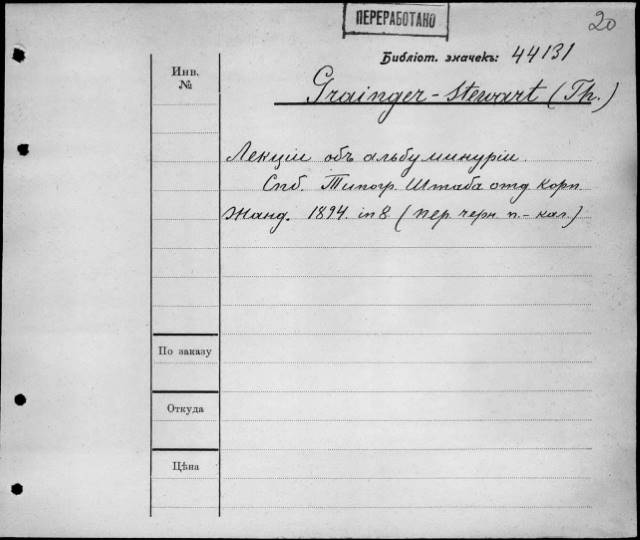 ПЕРЕРАБОТАНО
20
Библіот. значекъ: 44131
Инв. №
Grainger-Stewart (Th.)
Лекціи объ альбуминуріи.
Спб. Типогр. Штаба отд. Корп.
Жанд. 1894. in 8 (пер. черн. п.-кал.)
По заказу
Откуда
Цѣна